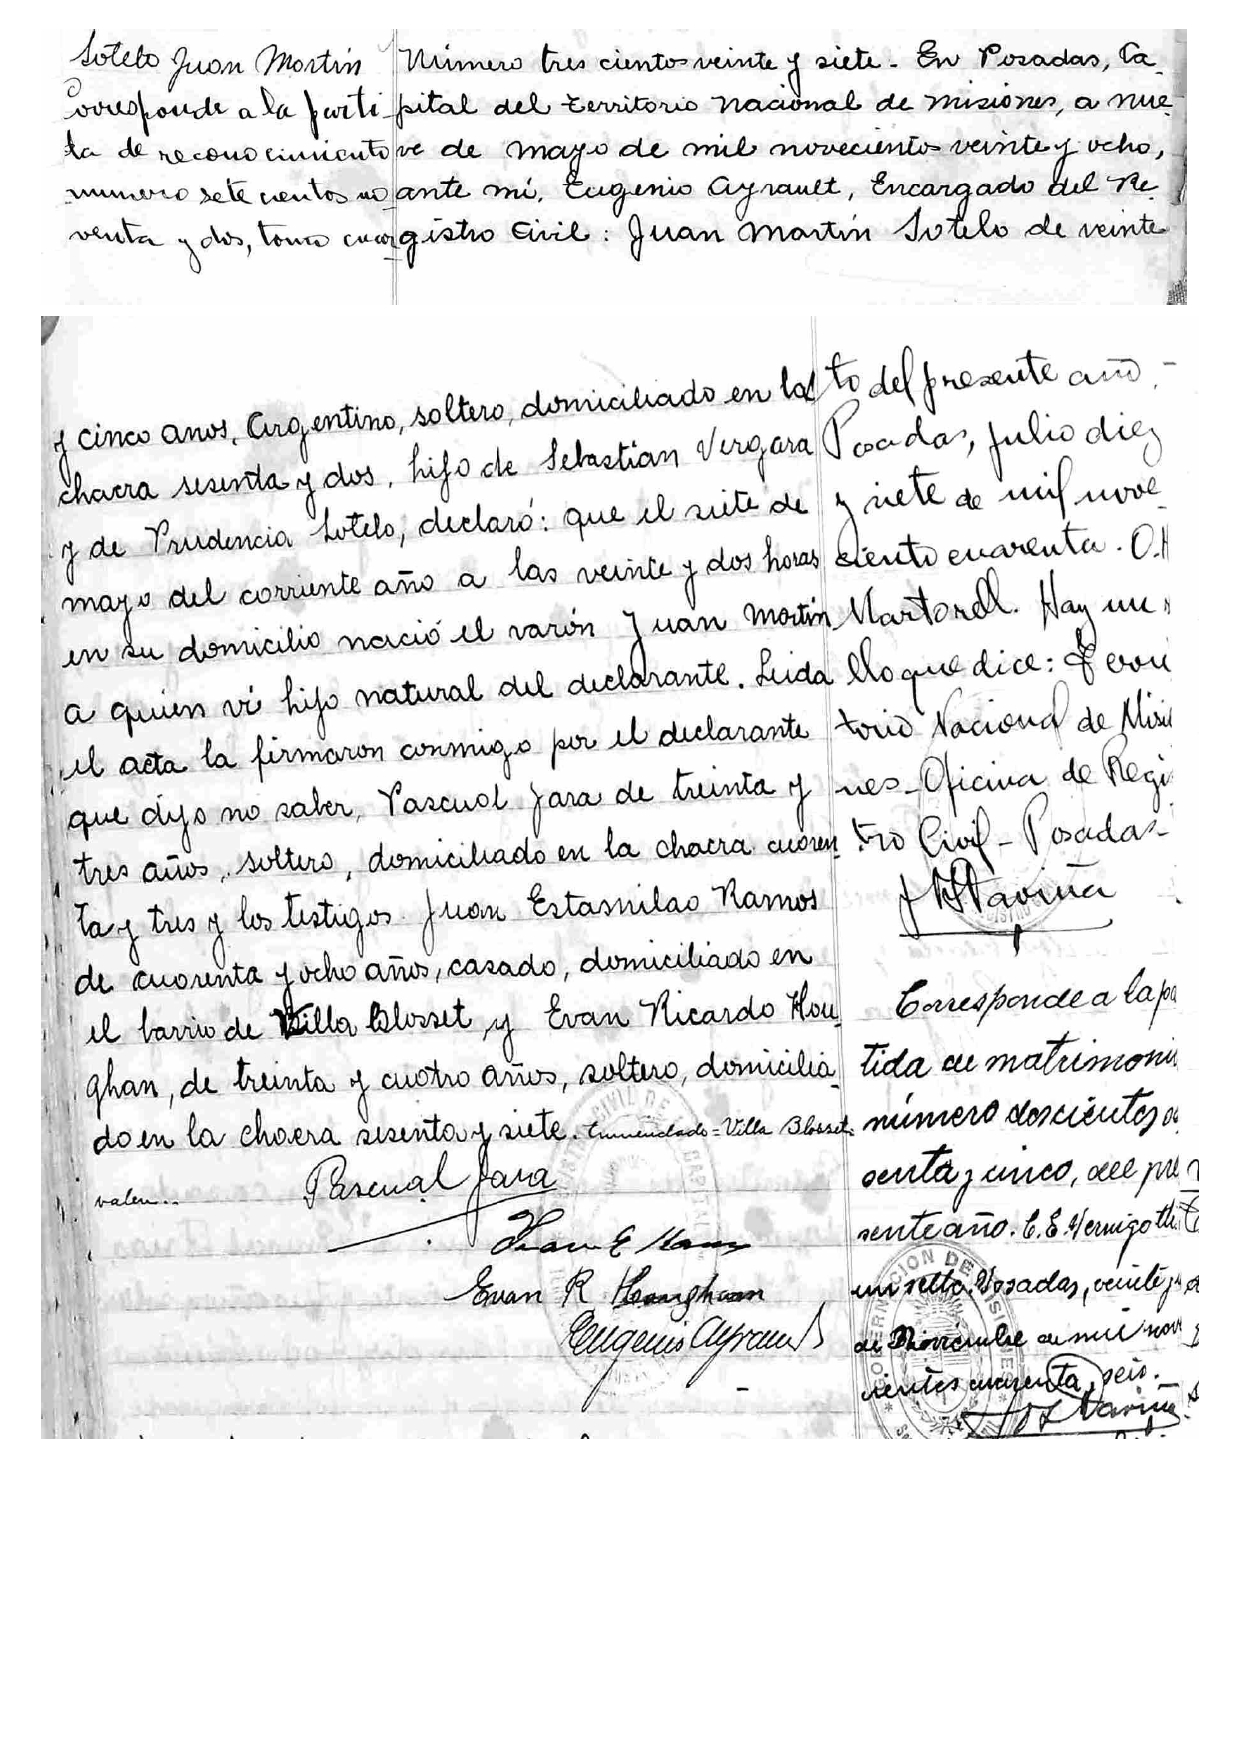 Sotelo Juan Martín
Corresponde a la parti
da de reconocimiento
numero sete cientos no
venta y dos, tomo cuar
Número tres cientos veinte y siete. En Posadas, Ca
pital del territorio nacional de misiones, a nue
ve de mayo de mil novecientos veinte y ocho,
ante mí, Eugenio Ayrault, Encargado del Re
gistro Civil: Juan Martín Sotelo de veinte
y cinco anos, Argentino, soltero, domiciliado en la
chacra sesenta y dos, hijo de Sebastián Vergara
y de Prudencia Sotelo, declaró: que el siete de
mayo del corriente año a las veinte y dos horas
en su domicilio nació el varón Juan Martín
a quien vi hijo natural del declarante. Leida
el acta la firmaron conmigo por el declarante
que dijo no saber, Pascual Jara de treinta y
tres años, soltero, domiciliado en la chacra cuaren
ta y tres y los testigos Juan Estasnilao Ramos
de cuarenta y ocho años, casado, domiciliado en
el barrio de Villa Blosset, y Evan Ricardo Hou
ghan, de treinta y cuatro años, soltero, domicilia
do en la chacra sesenta y siete. Enmendado=Villa Blosset
valen..
Pascual Jara
Juan E Ramos
Evan R Houghan
Eugenio Ayrault
to del presente año.-
Posadas, julio diez
y siete de mil nove
ciento cuarenta. O.H
Martorell. Hay un s
llo que dice: Terri
torio Nacional de Misio
nes-Oficina de Regi
tro Civil-Posadas-
Corresponde a la pa
tida de matrimoni
número doscientos
senta y cinco, del pre
sente año. C.E.Vernigo
un sello. Posadas, veinte y
de Noviembre de mil nov
cientos cuarenta, seis.-
GOBERNACION DE MISIONES